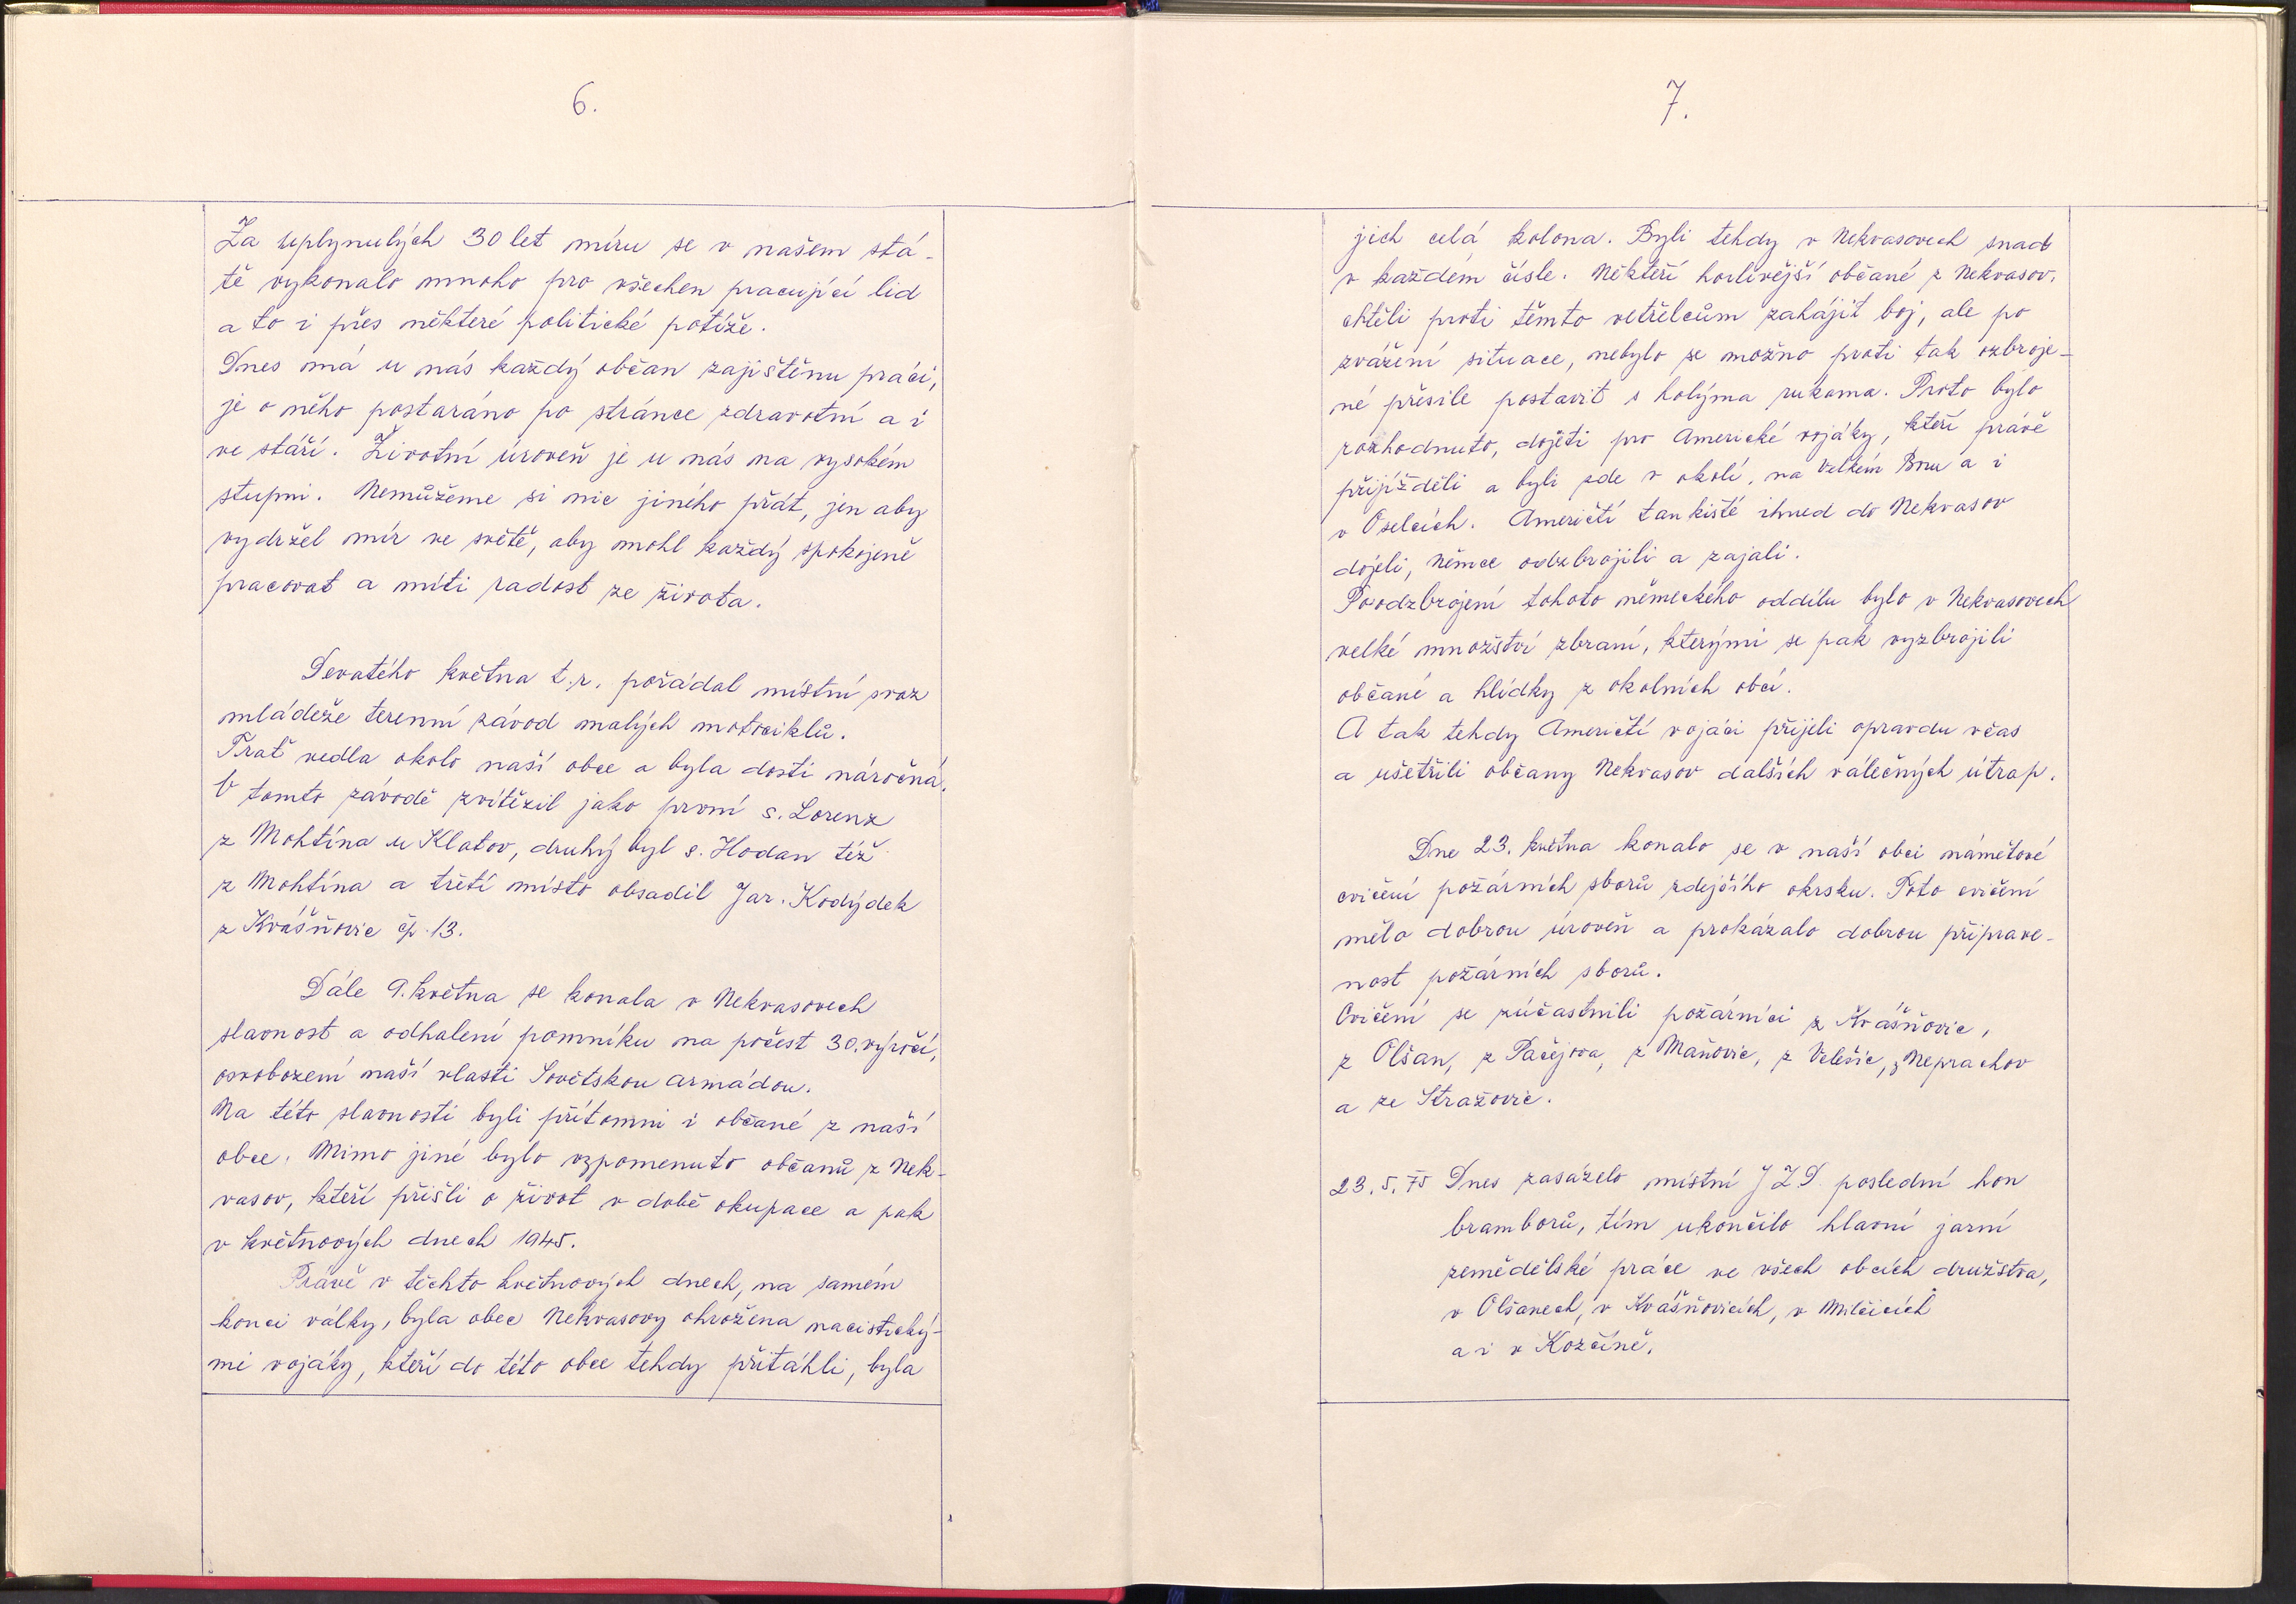 6.
Za uplynulých 30 let míru se v našem stá-
tě vykonalo mnoho pro všechen pracující lid
a to i přes některé politické potíže.
Dnes má u nás každý občan zajištěnu práci,
je o něho postaráno po stránce zdravotní a i
ve stáří. Životní úroveň je u nás na vysokém
stupni. Nemůžeme si nic jiného přát, jen aby
vydržel mír ve světě, aby mohl každý spokojeně
pracovat a míti radost ze života.
Devatého května t.r. pořádal místní svaz
mládeže terenní závod malých motociklů.
Trať vedla okolo naší obce a byla dosti náročná.
V tomto závodě zvítězil jako první s. Lorenz
z Mohtína u Klatov, druhý byl s. Hodan též
z Mohtína a třetí místo obsadil Jar. Kodýdek
z Kvášňovic čp. 13.
Dále 9. května se konala v Nekvasovech
slavnost a odhalení pomníku na počest 30. výročí,
osvobození naší vlasti Sovětskou armádou.
Na této slavnosti byli přítomni i občané z naší
obce. Mimo jiné bylo vzpomenuto občanů z Nek-
vasov, kteří přišli o život v době okupace a pak
v květnových dnech 1945.
Právě v těchto květnových dnech, na samém
konci války, byla obec Nekvasovy ohrožena nacistický-
mi vojáky, kteří do této obce tehdy přitáhli, byla
7.
jich celá kolona. Byli tehdy v Nekvasovech snad
v každém čísle. Někteří horlivější občané z Nekvasov,
chtěli proti těmto vetřelcům zahájit boj, ale po
zvážení situace, nebylo se možno proti tak ozbroje-
né přesile postavit s holýma rukama. Proto bylo
rozhodnuto, dojeti pro Americké vojáky, kteří právě
přijížděli a byli zde v okolí, na Velkém Boru a i
v Oselcích. Američtí tankisté ihned do Nekvasov
dojeli, Němce odzbrojili a zajali.
Po odzbrojení tohoto německého oddílu bylo v Nekvasovech
velké množství zbraní, kterými se pak vyzbrojili
občané a hlídky z okolních obcí.
A tak tehdy Američtí vojáci přijeli opravdu včas
a ušetřili občany Nekvasov dalších válečných útrap.
Dne 23. května konalo se v naší obci námětové
cvičení požárních sborů zdejšího okrsku. Toto cvičení
mělo dobrou úroveň a prokázalo dobrou připrave-
nost požárních sborů.
Cvičení se zúčastnili požárníci z Kvášňovic,
z Olšan, z Pačejova, z Maňovic, z Velešic, z Neprachov
a ze Stražovic.
23. 5. 75 Dnes zasázelo místní JZD poslední hon
bramborů, tím ukončilo hlavní jarní
zemědělské práce ve všech obcích družstva,
v Olšanech, v Kvášňovicích, v Milčicích
a i v Kozčíně.